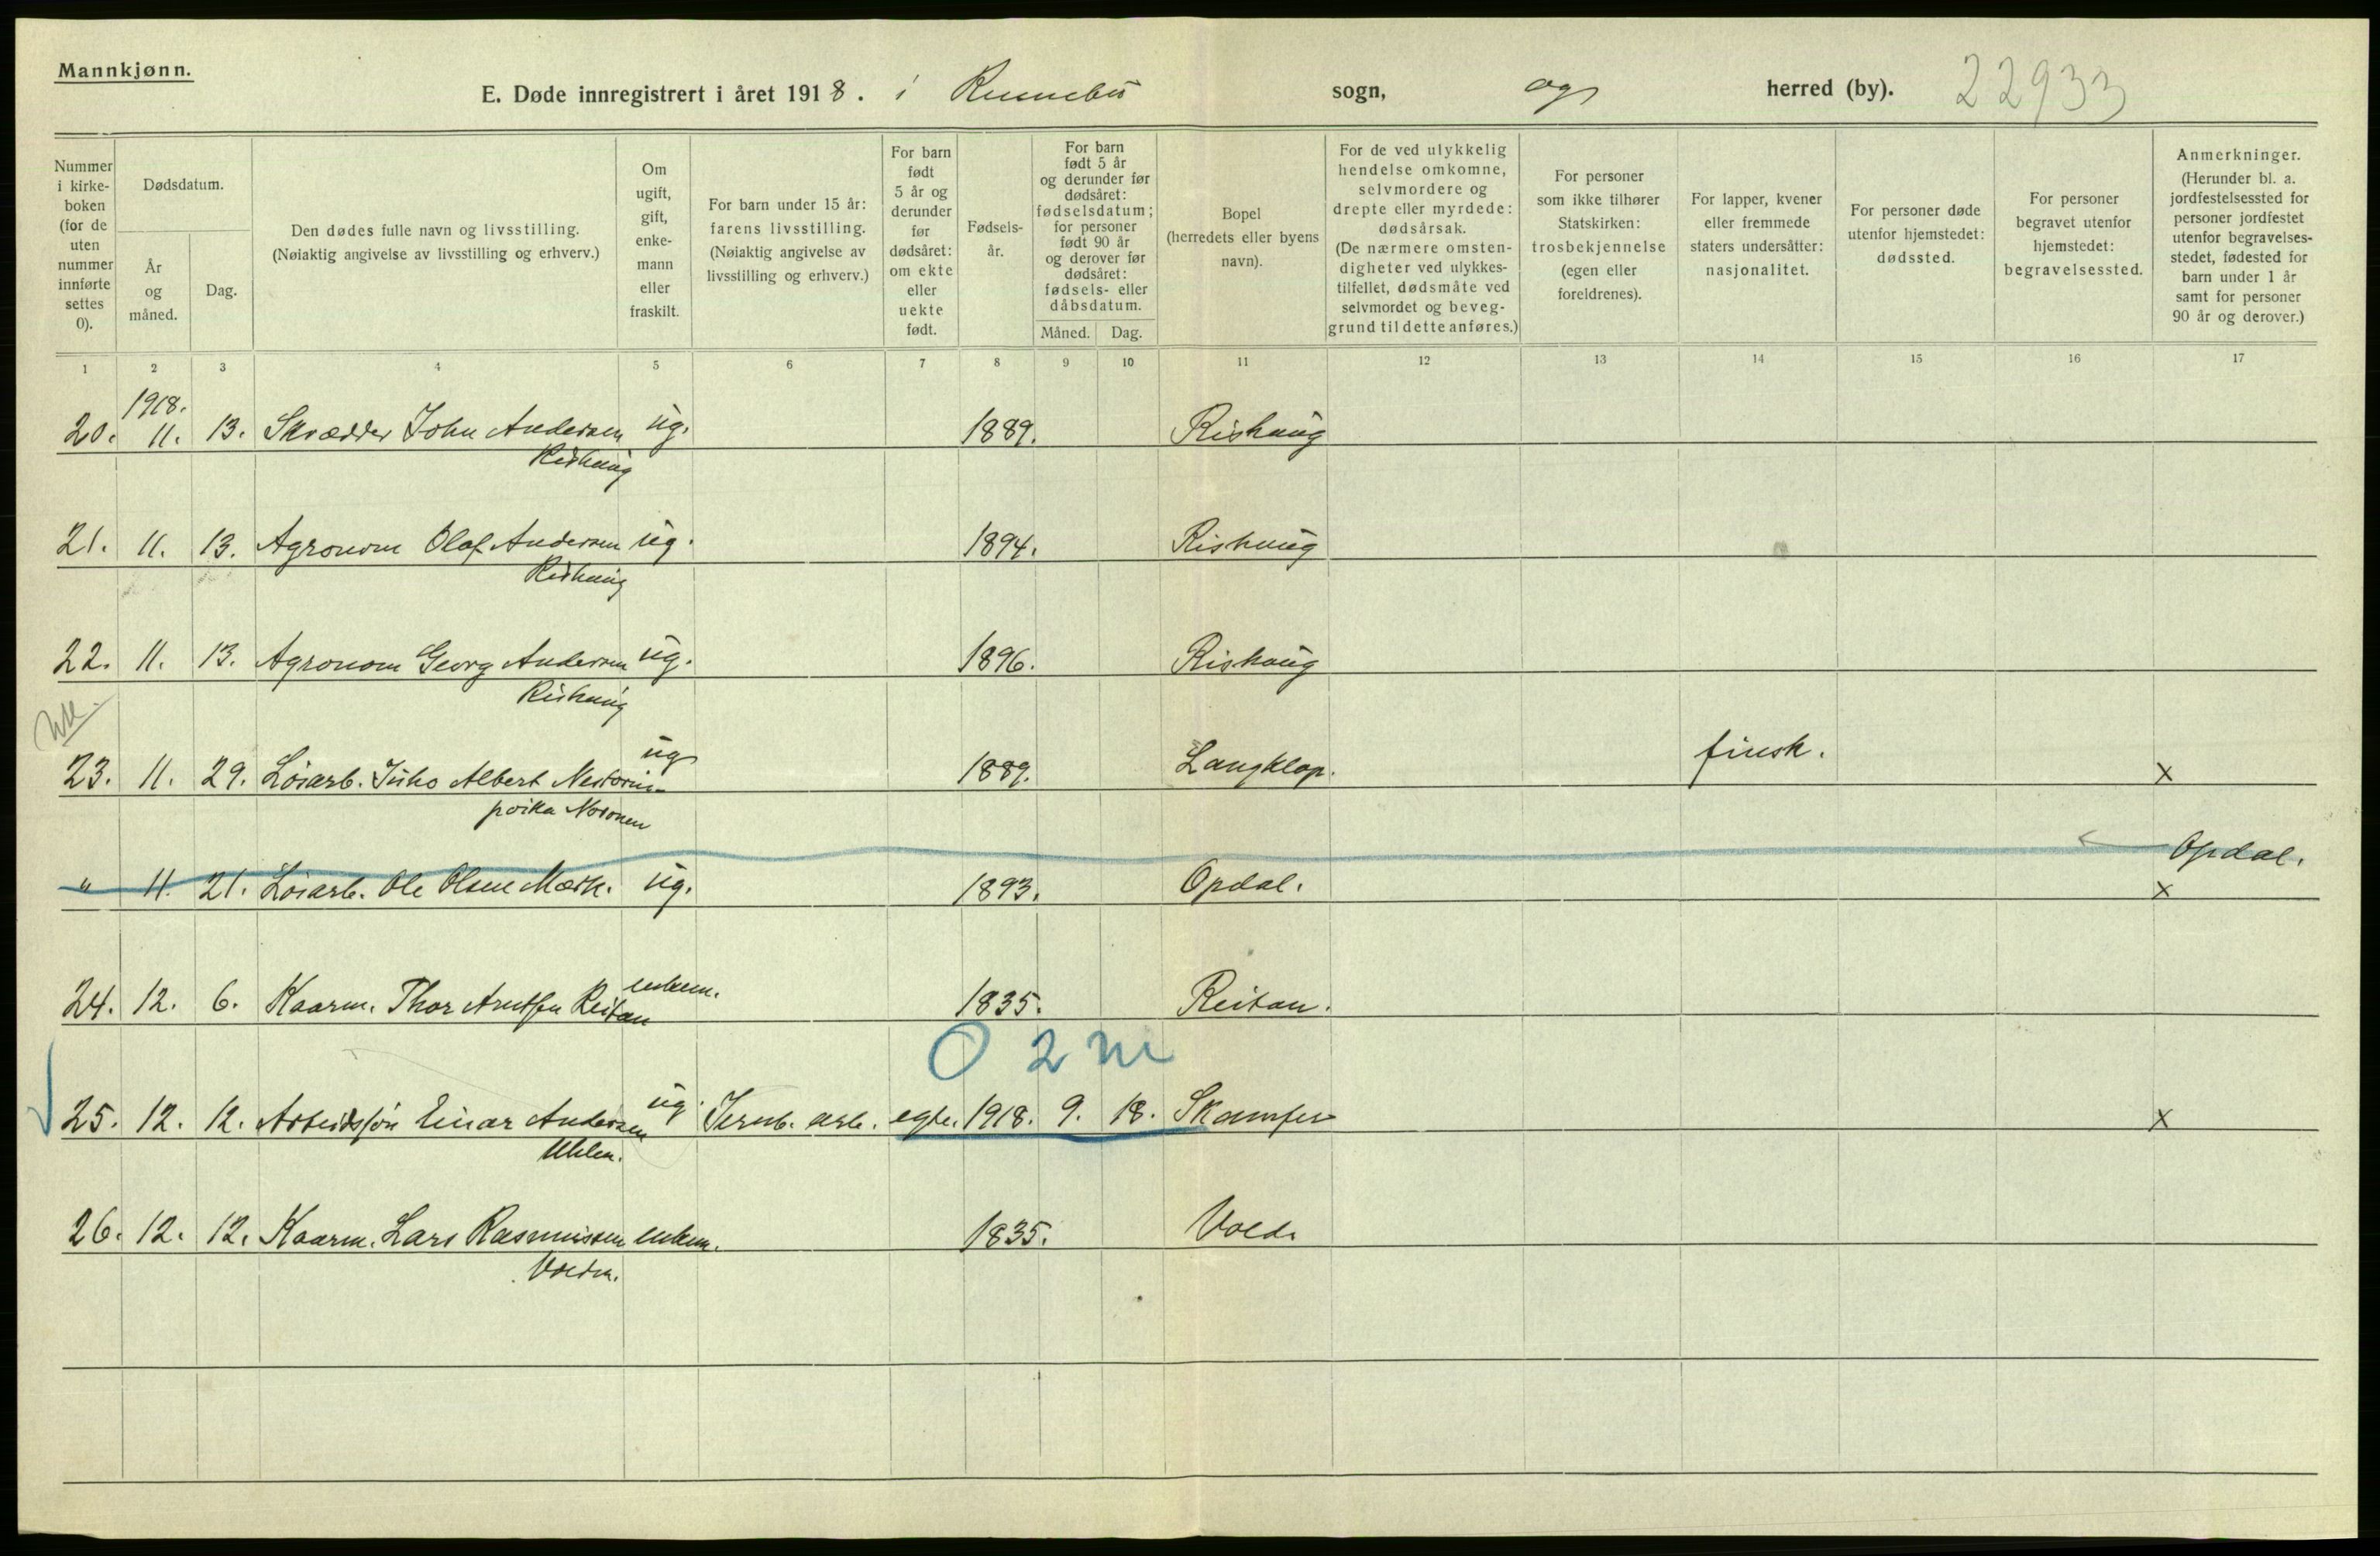 Mannkjønn.
E. Døde innregistrert i året 1918. i Rennebu sogn, og herred (by). 22933
Nummer i kirke- boken (for de uten nummer innførte settes 0).
Dødsdatum.
År og måned.
Dag.
Den dødes fulle navn og livsstilling.
(Nøiaktig angivelse av livsstilling og erhverv.)
Om ugift, gift, enke- mann eller fraskilt.
For barn under 15 år: farens livsstilling. (Nøiaktig angivelse av livsstilling og erhverv.)
For barn født 5 år og derunder før dødsåret: om ekte eller uekte født.
Fødsels- år.
For barn født 5 år og derunder før dødsåret: fødselsdatum; for personer født 90 år og derover før dødsåret: fødsels- eller dåbsdatum.
Måned. Dag.
Bopel (herredets eller byens navn).
For de ved ulykkelig hendelse omkomne, selvmordere og drepte eller myrdede: dødsårsak. (De nærmere omsten- digheter ved ulykkes- tilfellet, dødsmåte ved selvmordet og beveg- grund til dette anføres.)
For personer som ikke tilhører Statskirken: trosbekjennelse (egen eller foreldrenes).
For lapper, kvener eller fremmede staters undersåtter: nasjonalitet.
For personer døde utenfor hjemstedet: dødssted.
For personer begravet utenfor hjemstedet: begravelsessted.
Anmerkninger. (Herunder bl. a. jordfestelsessted for personer jordfestet utenfor begravelses- stedet, fødested for barn under 1 år samt for personer 90 år og derover.)
1 2 3 4 5 6 7 8 9 10 11 12 13 14 15 16 17
1918.
20. 11. 13. Skrædder John Andersen ug. 1889. Rishaug
Rishaug
21. 11. 13. Agronom Olaf Andersen ug. 1894. Rishaug
Rishaug
22. 11. 13. Agronom Georg Andersen ug. 1896. Rishaug
Rishaug
23. 11. 29. Løsarb. Juho Albert Nestorin- ug 1889. Langklop. finsk. x
poika Nosonen
Opdal.
" 11. 21. Løsarb. Ole Olsen Mærk. ug. 1893. Opdal. x
24. 12. 6. Kaarm. Thor Arntsen Reitan enkem. 1835. Reitan.
0 2 m
25. 12. 12. Arbeidssøn Einar Andersen ug. Jernb. arb. egte. 1918. 9. 18. Skamfer x
Uhlen.
26. 12. 12. Kaarm. Lars Rasmussen enkem. 1835. Vold.
Volden.